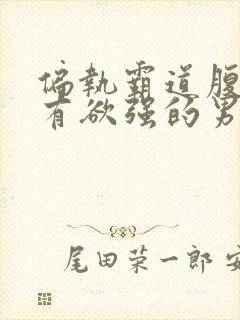 偏執霸道腹
有欲强的男
尾田荣一郎 安